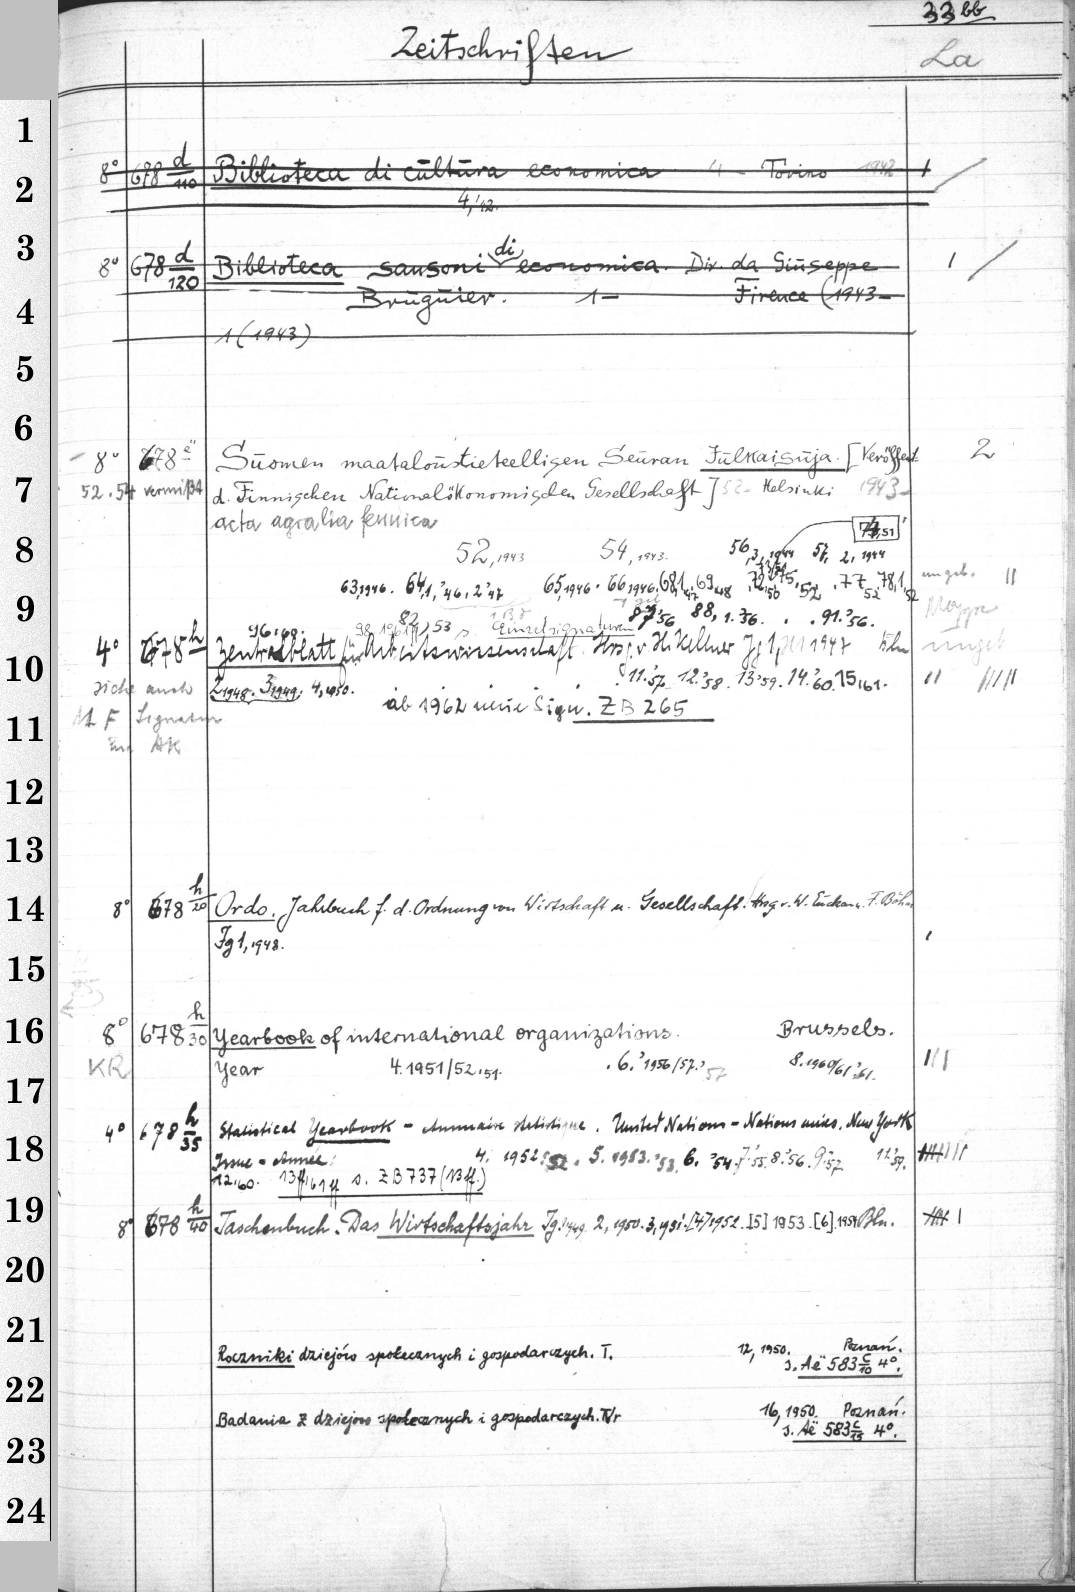 33 bb
Zeitschriften
La
1
8° 678 d/110 Biblioteca di cultura economica 4 - Torino 1942 1
2
4,'42.
3
8° 678 d/120 Biblioteca sansoni di economica. Dir. da Giuseppe 1
4
Bruguier. 1- Firence (1943-
1 (1943)
5
6
8° 678 Suomen maataloustieteellisen Seuran Julkaisuja. [Veröffent 2
7
52.54 vermißt d. Finnischen Nationalökonomischen Gesellschaft] 52- Helsinki 1943-
acta agralia fennica
8
52,1943 54,1943. 56,3,1944 57, 2, 1944
63,1946. 64,1,'46,2'47 65,1946. 66,1946, ungeb. II
9
87,'56 88,1.'56. 91.'56. Mappe
Einzelsignaturen
4° 678 h Zentralblatt für Arbeitswissenschaft. Hrsg. v. H. Kellner Jg 1, 1947 ungeb
10
siehe auch 2,1948. 3,1949. 4,1950. 11.'57. 12.'58. 13'59. 14.'60. 15,'61.
M F Signatur ab 1962 neue Sign. ZB 265
11
im AK
12
13
14
8° 678 h/20 Ordo. Jahrbuch f. d. Ordnung von Wirtschaft u. Gesellschaft. Hrsg. v. W. Eucken u. F. Böhm
Jg 1, 1948.
15
16
8° 678 h/30 Yearbook of international organizations. Brussels.
KR Year 4.1951/52,'51. 6.'1956/57.'57 8.1960/61'61. III
17
4° 678 h/35 Statistical Yearbook - Annuaire statistique. United Nations - Nations unies. New York
18
Issue - Année: 4. 1952:'52. 5. 1953.'53. 6. '54. 7.'55. 8.'56. 9.'57 12'59.
12,'60. 13ff,'61ff s. ZB 737 (13ff.)
19
8° 678 h/40 Taschenbuch. Das Wirtschaftsjahr Jg. 1,1949. 2,1950. 3,1951. [4]1952. [5] 1953. [6],1954 Bln.
20
21
Roczniki dziejów społecznych i gospodarczych. T. 12, 1950. Poznań.
s. Aë 583 c/10 4°.
22
Badania z dziejów społecznych i gospodarczych. Nr 16, 1950. Poznań.
s. Aë 583 c/15 4°.
23
24